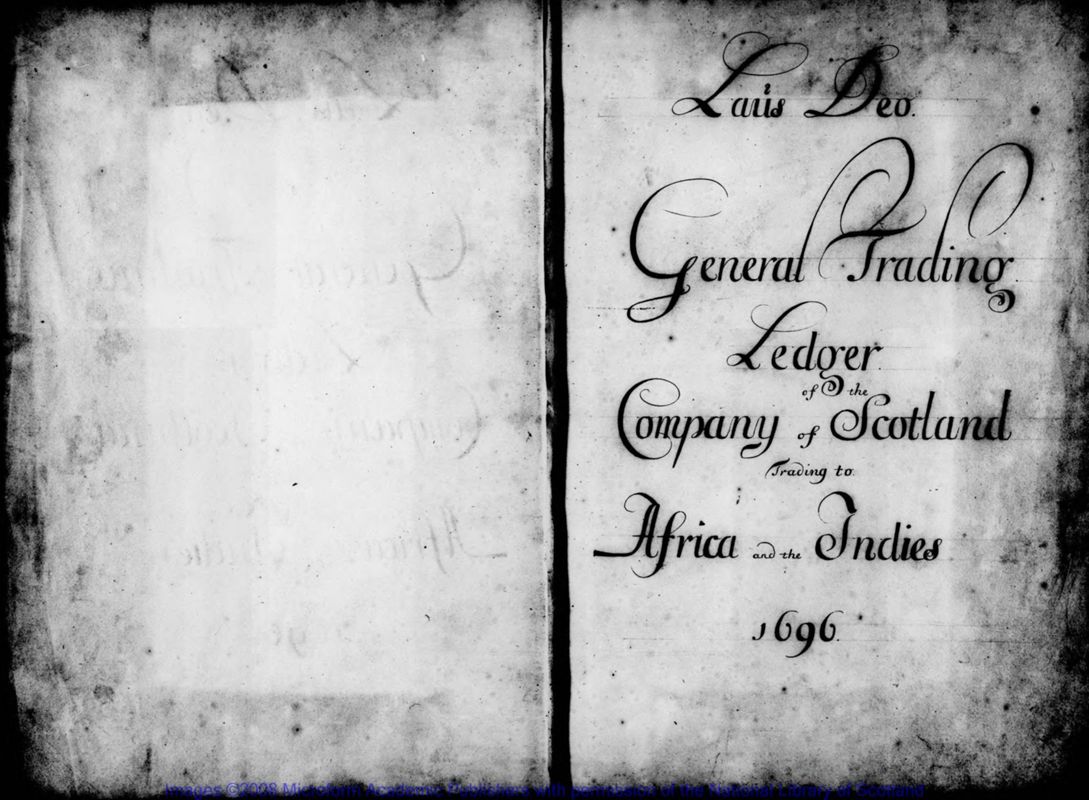 Laus Deo.
General Trading
Ledger
of the
Company of Scotland
Trading to
Africa and the Indies
1696.
Images ©2008 Microform Academic Publishers with permission of the National Library of Scotland